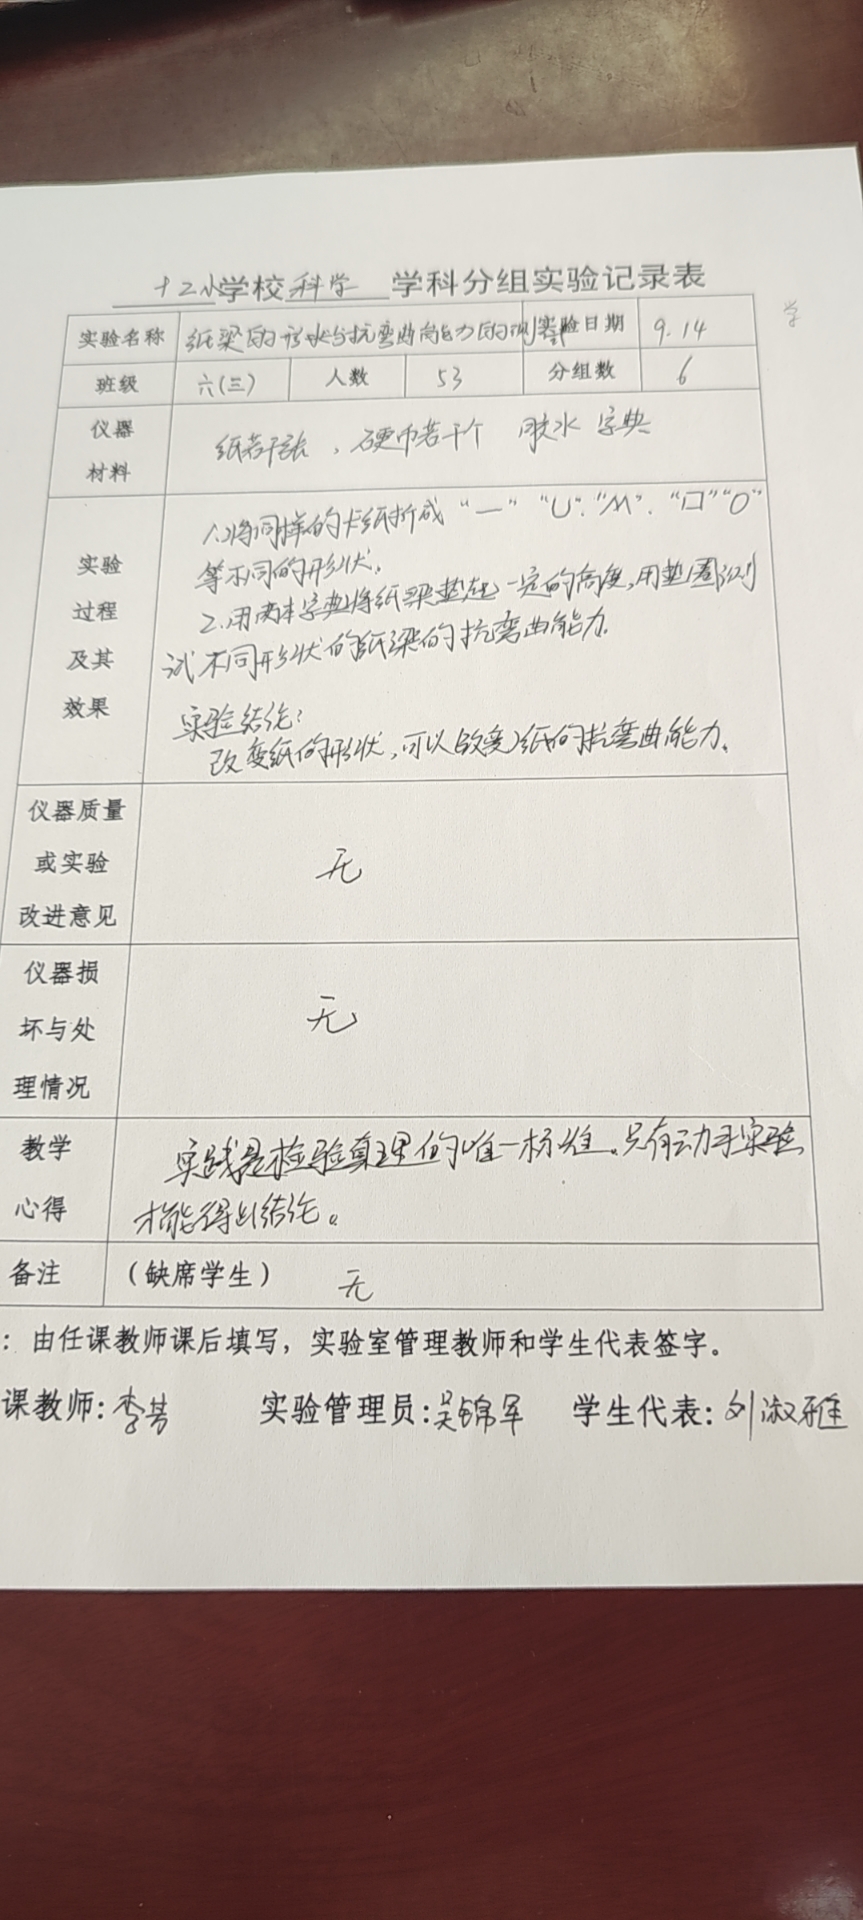 十二小学校科学 学科分组实验记录表
学
实验名称 纸梁的形状与抗弯曲能力的测 实验日期 9.14
班级 六(三) 人数 53 分组数 6
仪器
材料
纸若干张，硬币若干个 胶水 字典
实验
过程
及其
效果
1.将同样的卡纸折成“一”“U”.“M”.“口”“O”
等不同的形状.
2.用两本字典将纸梁垫起一定的高度,用垫圈测
试不同形状的纸梁的抗弯曲能力.
实验结论:
改变纸的形状,可以改变纸的抗弯曲能力.
仪器质量
或实验
改进意见
无
仪器损
坏与处
理情况
无
教学
心得
实践是检验真理的唯一标准。只有动手实验
才能得出结论。
备注 （缺席学生） 无
：由任课教师课后填写，实验室管理教师和学生代表签字。
课教师:李芳 实验管理员:吴锦军 学生代表:刘淑雅